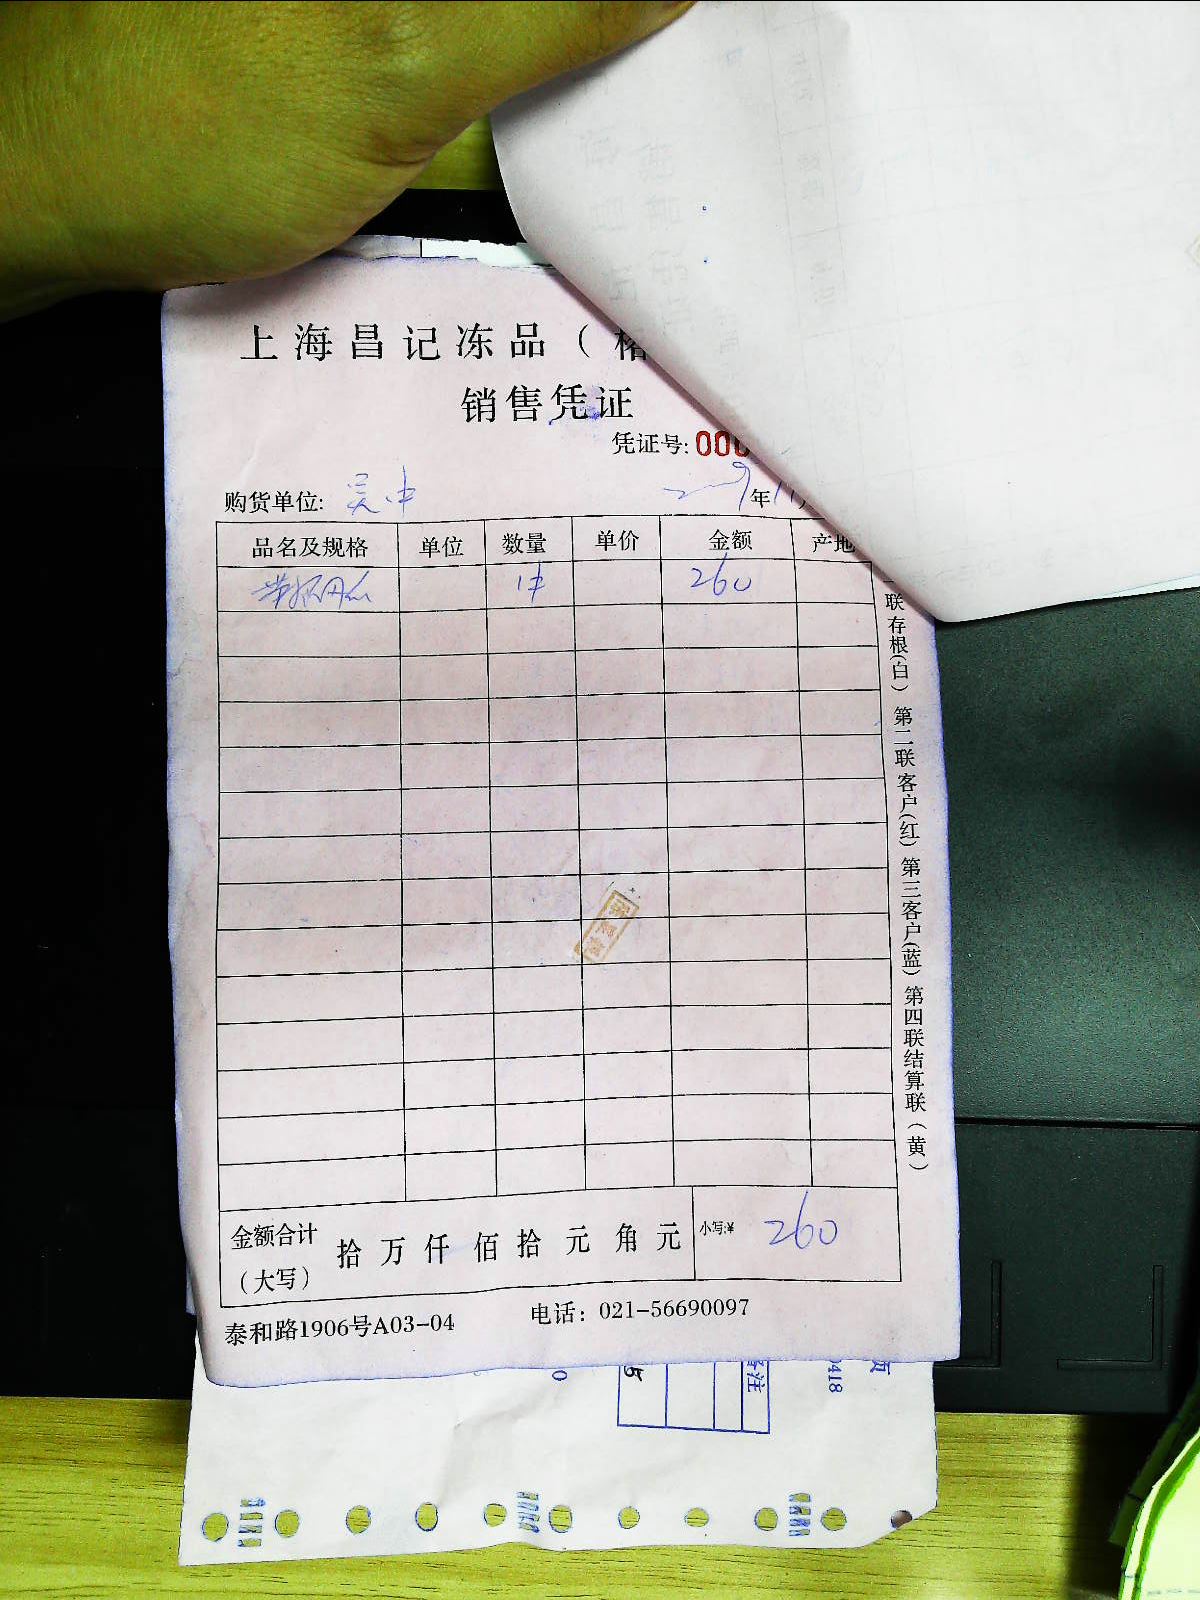 上海昌记冻品（
销售凭证
凭证号: 000
购货单位: 吴中 2009年11
品名及规格 单位 数量 单价 金额 产地
1件 260
联存根(白) 第二联客户(红) 第三客户(蓝) 第四联结算联(黄)
金额合计(大写) 拾 万 仟 佰 拾 元 角 元 小写:¥ 260
泰和路1906号A03-04 电话: 021-56690097